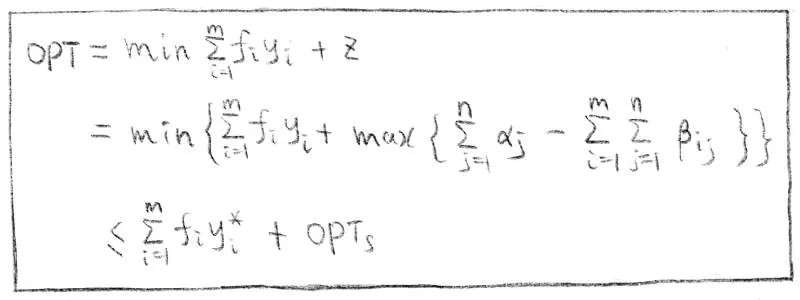 OPT = min ∑_{i=1}^{m} f_i y_i + z
= min{∑_{i=1}^{m} f_i y_i + max{∑_{j=1}^{n} α_j - ∑_{i=1}^{m} ∑_{j=1}^{n} β_{ij}}}
≤ ∑_{i=1}^{m} f_i y_i^* + OPT_s